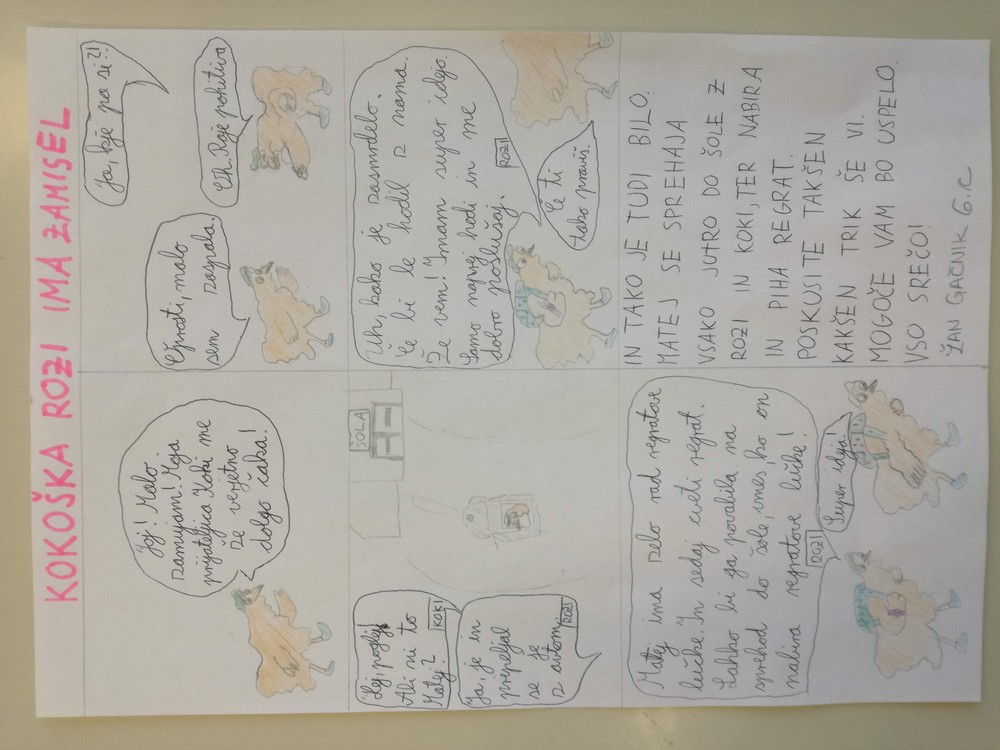 KOKOŠKA ROZI IMA ZAMISEL
Joj! Malo
zamujam! Moja
prijateljica Koki me
že verjetno
dolgo čaka!
Ja, kje pa si?!
Oprosti, malo
sem zaspala.
Uh. Daje pohitiva
Lej, poglej!
Ali ni to
Matej?
KOKI
Ja, je in
prepeljal
se je
z avtom.
ROZI
ŠOLA
Uh, kako je zasmrdelo.
Če bi le hodil z nama.
Že vem! Imam super idejo.
Samo naprej hodi in me
dobro poslušaj.
ROZI
Če ti
tako praviš.
Matej ima zelo rad regratove
lučke. In sedaj cveti regrat.
Lahko bi ga povabila na
sprehod do šole, vmes, ko on
nabira regratove lučke!
ROZI
Super ideja!
IN TAKO JE TUDI BILO.
MATEJ SE SPREHAJA
VSAKO JUTRO DO ŠOLE Z
ROZI IN KOKI, TER NABIRA
IN PIHA REGRAT.
POSKUSITE TAKŠEN
KAKŠEN TRIK ŠE VI.
MOGOČE VAM BO USPELO.
VSO SREČO!
ŽAN GAČNIK 6.C